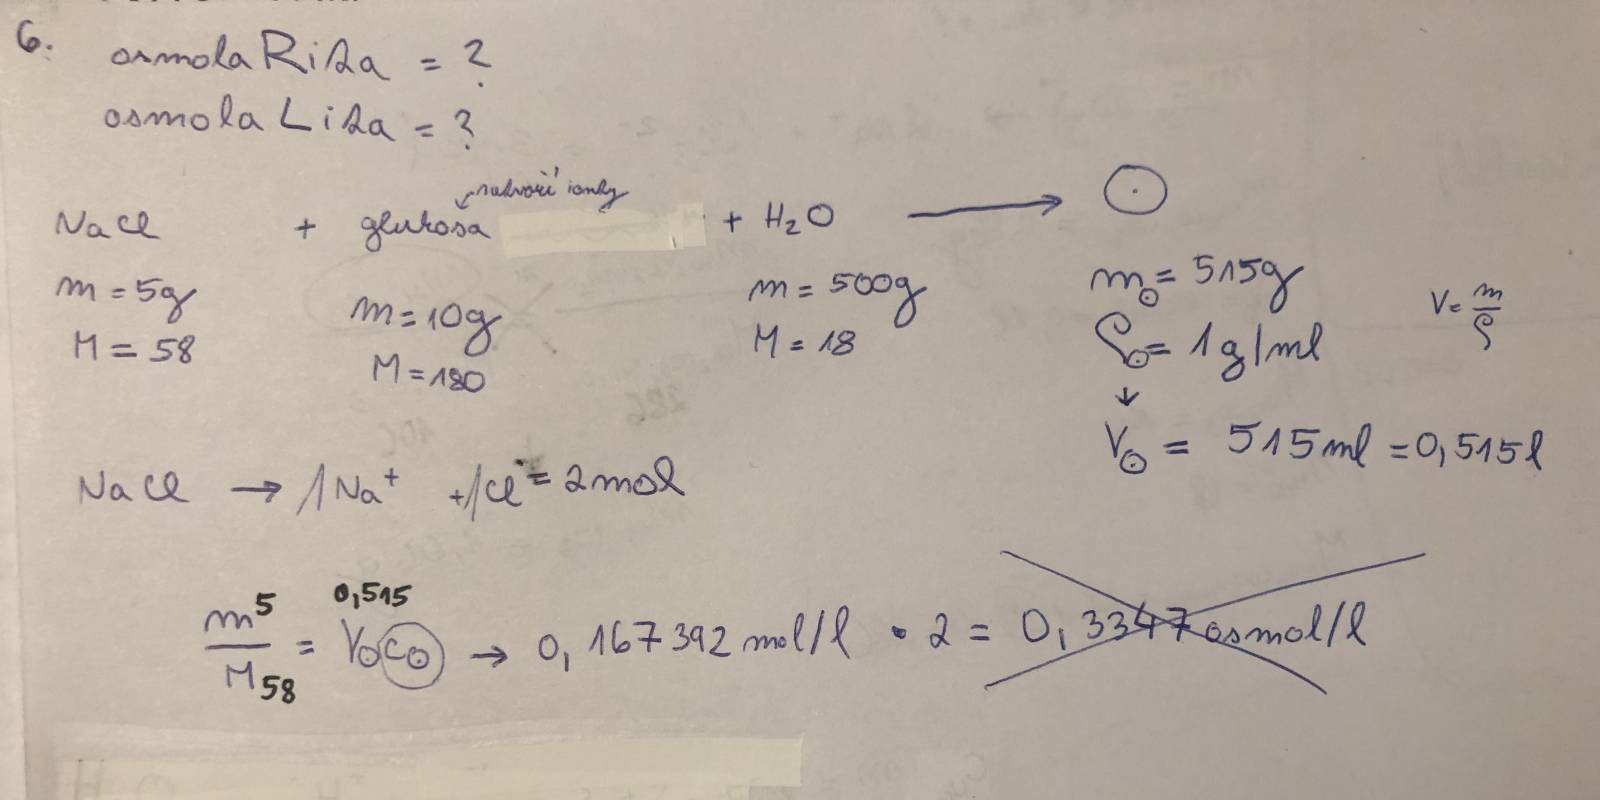 6. osmolaRita = ?
osmolaLita = ?
netvoří ionty
NaCl + glukosa + H₂O ⟶ ⊙
m = 5g m = 10g m = 500g m⊙ = 515g V = m/ρ
M = 58 M = 180 M = 18 ρ⊙ = 1 g/ml
↓
V⊙ = 515ml = 0,515l
NaCl → 1Na⁺ + 1Cl⁻ = 2mol
m 5 / M 58 = V⊙ 0,515 c⊙ → 0,167392 mol/l · 2 = 0,3347 osmol/l